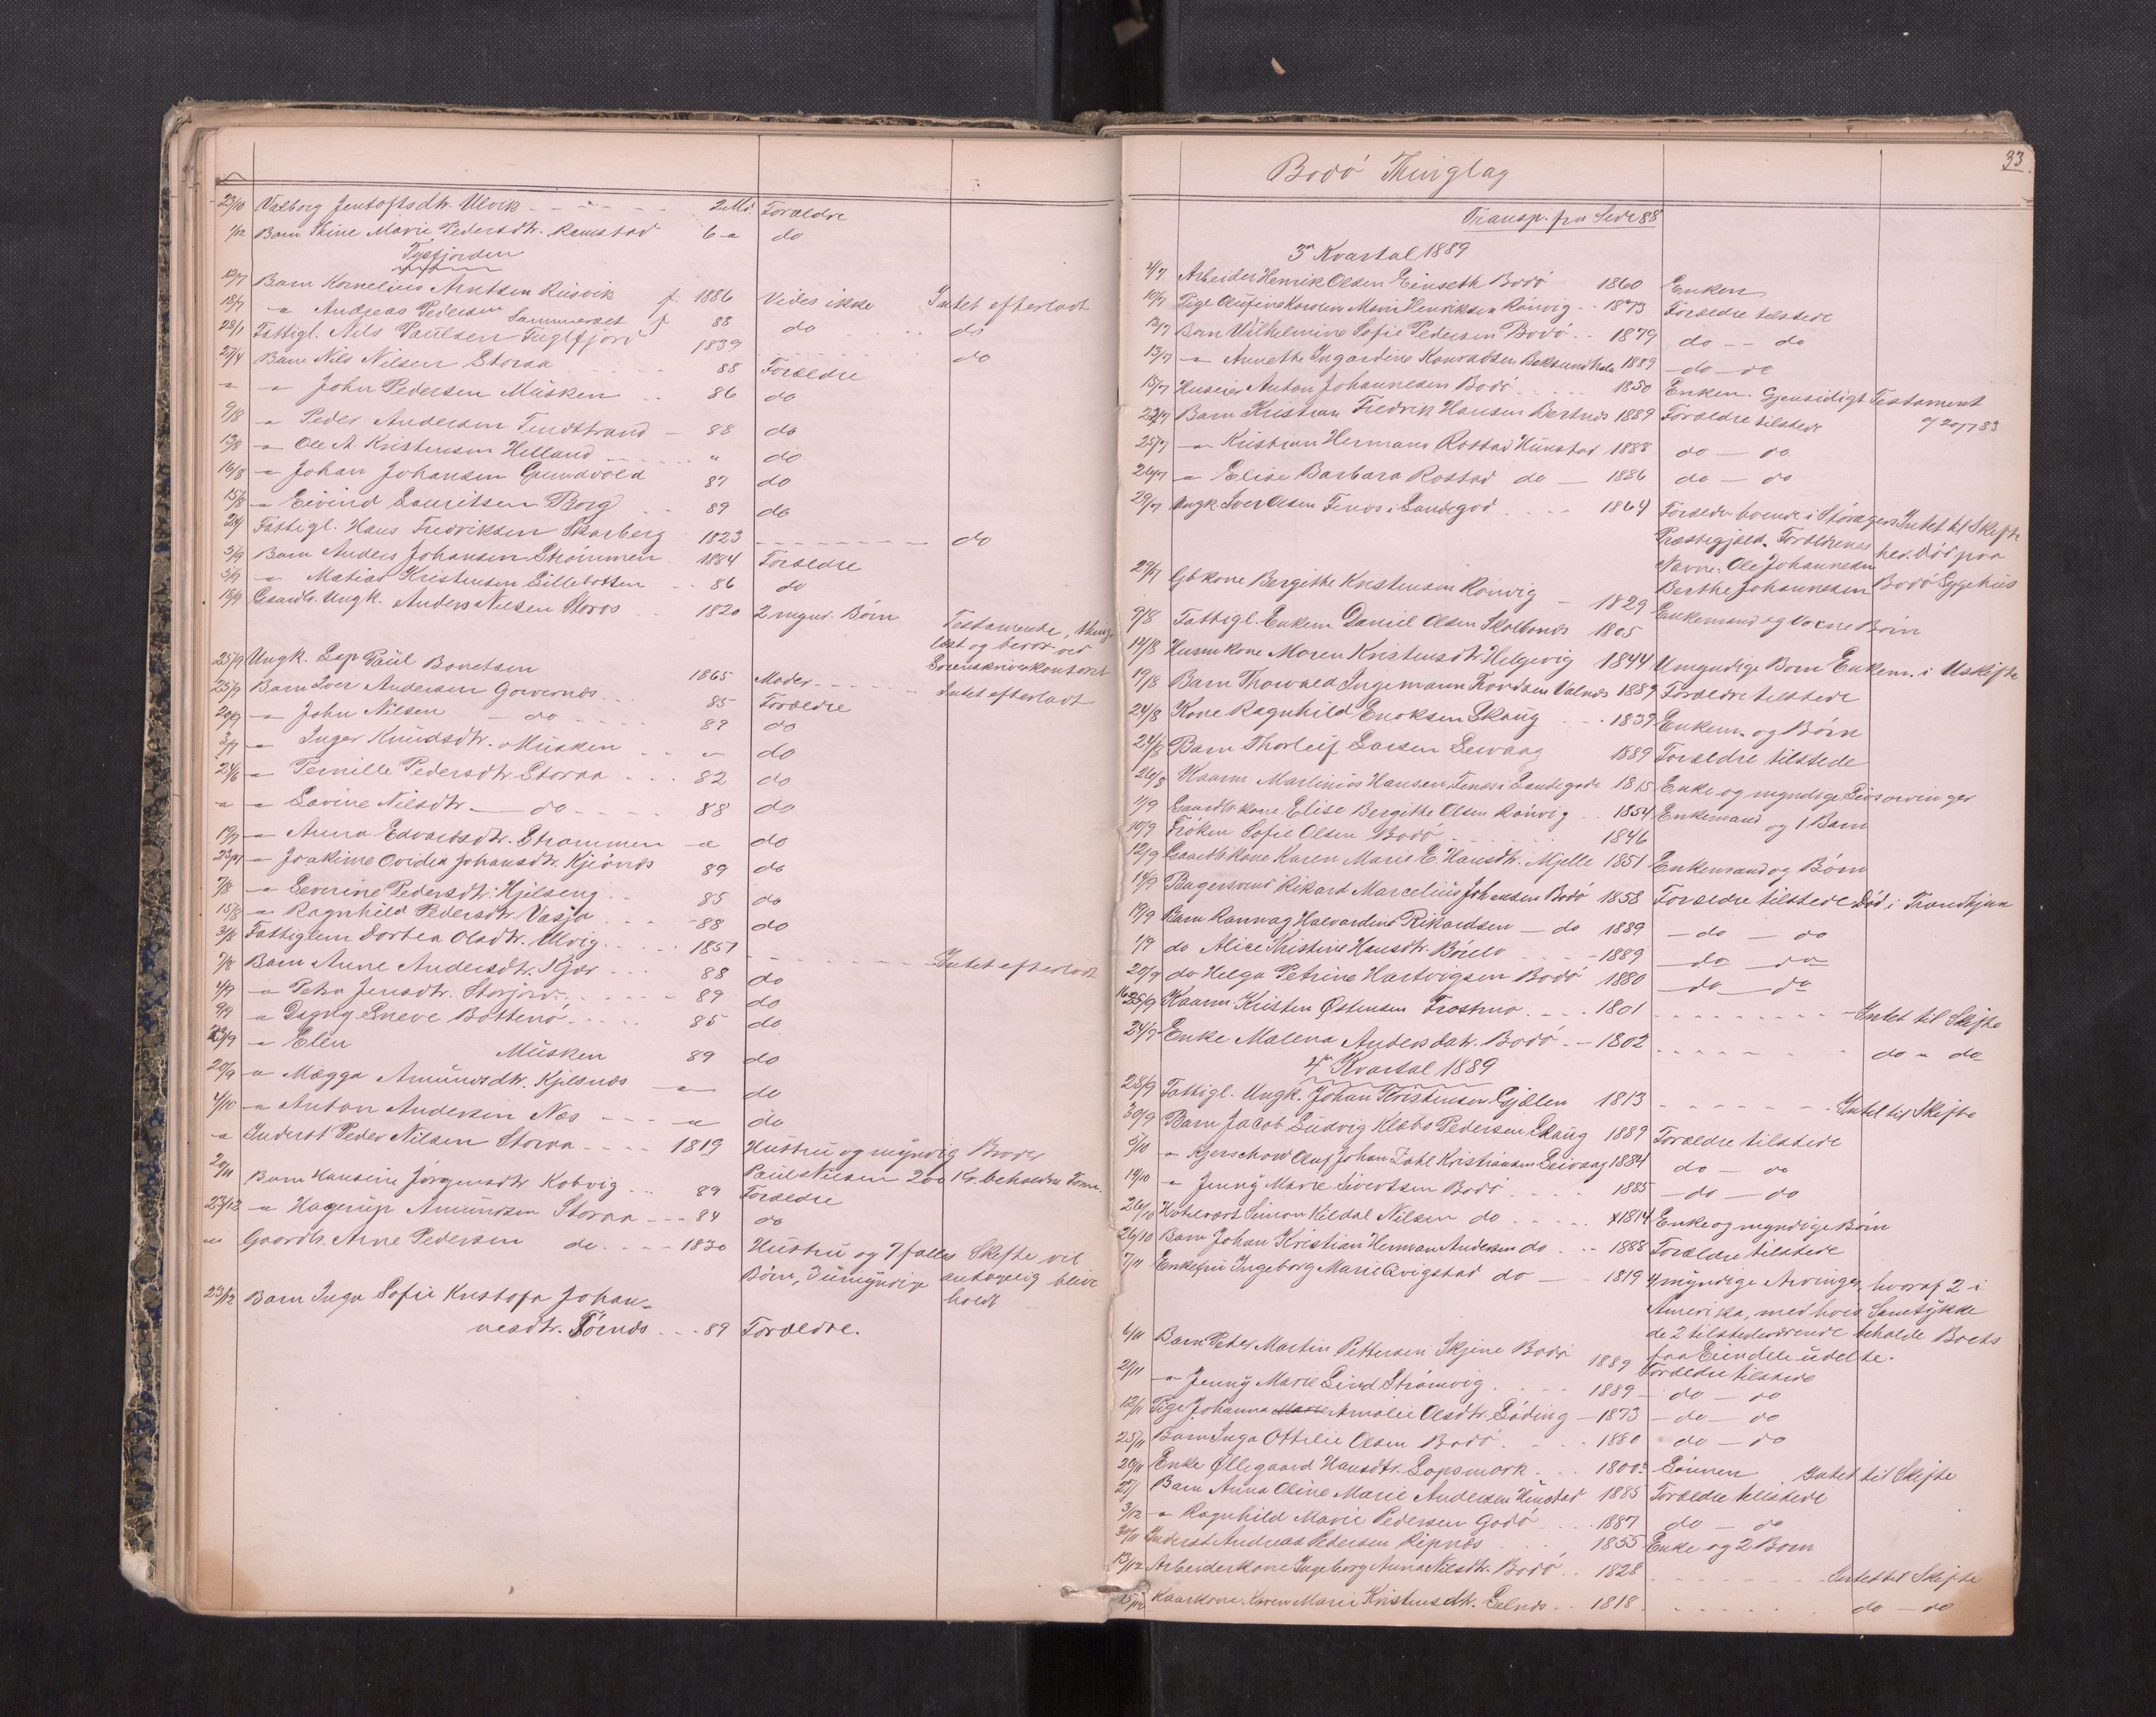 23/10 Valborg Jentoftsdtr. Ulvik - - - - - 2 Md. Forældre
1/12 Barn Stine Marie Pedersdtr. Remstad 6 -"- do
Tysfjorden
12/7 Barn Kornelius Arntsen Riisvik f. 1886 Vides ikke Intet efterladt
18/7 -"- Andreas Pedersen Sammervset f 88 do do
28/1 Fattigl. Nils Paulsen Fuglfjord 1839 - - - - - do
27/4 Barn Nils Nilsen Storaa 88 Forældre
" -"- John Pedersen Müsken 86 do
9/8 -"- Peder Andersen Tindstrand - 88 do
13/8 -"- Ole A. Kristensen Helland " do
16/8 -"- Johan Johansen Grundvold 87 do
15/8 -"- Eivind Lauritsen Borg 89 do
Fattigl. Hans Fredriksen Skarberg 1823 - - - - - do
5/9 Barn Anders Johansen Strömmen 1884 Forældre
5/9 -"- Matias Kristensen Lillebotten 86 do
16/9 Gaardbr. Ungk. Anders Nilsen Storos 1820 2 mynd. Börn Testamente, thing-
læst og beror ved
Sorenskriverkontoret
25/9 Ungk. Lap Paul Bonetsen 1865 Moder - - - Intet efterladt
25/9 Barn Iver Andersen Gowernæs 85 Forældre
20/9 -"- John Nilsen - do - - - 89 do
3/7 -"- Inger Knudsdtr. Müsken " do
24/6 -"- Pernille Pedersdtr. Storaa 82 do
" -"- Lavine Nilsdtr. - do - - - 88 do
19/7 -"- Anna Edvardsdtr. Strömmen " do
23/7 -"- Joakime Ovidia Johansdtr. Kjeönæs 89 do
7/8 -"- Severine Pedersdtr. Hjelseng 85 do
15/8 -"- Ragnhild Pedersdtr. Vasja 88 do
3/8 Fattiglem Dortea Olsdtr. Ulvig 1851 - - - - - Intet efterladt
7/8 Barn Anne Andersdtr. Kjær 88 do
4/9 -"- Petra Jensdtr. Storjord 89 do
9/9 -"- Dagny Greve Bottenö 85 do
23/9 -"- Elen Müsken 89 do
20/9 -"- Magga Amundsdtr. Kjelsnæs -"- do
4/10 -"- Anton Andersen Næs -"- do
" Inderst Peder Nilsen Storaa 1819 Hustru og myndig Broder
Paul Nilsen 200 Kr. beholden Form.
20/11 Barn Hansine Jörgensdtr. Kobvig 89 Forældre
23/12 -"- Hagerup Amundsen Storaa 84 do
" Gaardb. Arne Pedersen do. 1830 Hustru og 7 fælles Skifte vil
Börn, 3 umyndige antagelig blive
holdt
23/12 Barn Inga Sofie Kristofa Johan-
nesdtr. Törnæs 89 Forældre.
33
Bodö Thinglag
Transp. fra Side 88
3die Kvartal 1889
2/7 Arbeider Henrik Olsen Einseth Bodö 1860 Enken
10/7 Pige Olufine Karoline Marie Henriksen Rönvig 1873 Forældre tilstede
12/7 Barn Vilhelmine Sofie Pedersen Bodö 1879 do - - do
13/7 -"- Annethe Ingardine Konradsen 1889 - do - do
15/7 Huseier Anton Johannesen Bodö 1850 Enken. Gjensidigt Testament
af 20/7 83
22/7 Barn Kristian Fredrik Hansen Bertnæs 1889 Forældre tilstede
25/7 -"- Kristian Hermann Rostad Hunstad 1888 do - do
26/7 -"- Elise Barbara Rostad do - 1886 do - do
29/7 Ungk. Iver Olsen Fenes i Landegod 1864 Forældre boende i Intet til Skifte
Præstegjæld. Forældrenes her. Död paa
Navne: Ole Johannesen Bodö Sygehus
Berthe Johannesen
27/7 Gbkone Bergithe Kristensen Rönvig - 1829 Enkemand og voxne Börn
9/8 Fattigl. Enkem. Daniel Olsen Skolbones 1805
14/8 Husm kone Maren Kristensdtr. Helgevig 1844 Umyndige Born Enkem. i Uskifte
19/8 Barn Thorvald Ingemann Thordsen Valnæs 1889 Forældre tilstede
24/8 Kone Ragnhild Enoksen Skaug 1839 Enkem. og Börn
24/8 Barn Thorleif Larsen Leivaag 1889 Forældre tilstede
26/8 Kaarm. Martinius Hansen Fenes i Landegode 1815 Enke og myndige Livsarvinger
1/9 Gaardbr.kone Elise Bergithe Olsen Rönvig 1854 Enkemand og 1 Barn
10/9 Fröken Sofie Olsen Bodö 1846
12/9 Gaardbr.kone Karen Marie E. Hansdtr. Mjelle 1851 Enkemand og Börn
14/9 Bagersvend Rikard Marcelius Johansen Bodö 1858 Forældre tilstede Död i Trondhjem
19/9 Barn Rannvag Halvardine Rikardsen - do 1889 - do - do
1/9 do Alice Kristine Hansdtr. 1889 - do - do
20/9 do Helga Petrine Hartvigsen Bodö 1880 - do - do
25/9 Kaarm. Kristen Østensen Frostmo 1801 - - - - - Intet til Skifte
24/9 Enke Malena Andersdatr. Bodö 1802 - - - - - do " do
4de Kvartal 1889
28/9 Fattigl. Ungk. Johan Kristensen Gjælen 1813 - - - - - Intet til Skifte
30/9 Barn Jacob Ludvig Klæbo Pedersen Skaug 1889 Forældre tilstede
5/10 -"- Kjerschow Oluf Johan Zahl Kristiansen Leivaag 1884 do - do
14/10 -"- Jenny Marie Sivertsen Bodö 1885 - do - do
26/10 Hotelvært Simon Kildal Nilsen do x1814 Enke og myndige Börn
26/10 Barn Johan Kristian Herman Andersen do 1888 Forældre tilstede
7/11 Enkefru Ingeborg Marie Qvigstad do - 1819 4 myndige Arvinger, hvoraf 2 i
Amerika, med hvis Samtykke
de 2 tilstedeværende beholde Boets
faa Eiendele udelte.
6/11 Barn Peter Martin Pettersen Skjene Bodö 1889 Forældre tilstede
2/11 -"- Jenny Marie Lind Strömvig 1889 - do - do
12/11 Pige Johanna Marie Amalie Olsdtr. Löding - 1873 - do - do
25/11 Barn Inga Ottilie Olsen Bodö 1880 do - do
20/11 Enke Øllegaard Hansdtr. Lopsmark 1800 Sönnen Intet til Skifte
Barn Anna Oline Marie Andersen Hunstad 1885 Forældre tilstede
3/12 -"- Ragnhild Marie Pedersen Godö 1887 do - do
30/11 Inderst Andreas Pedersen Ripnæs 1855 Enke og 2 Born
13/12 Arbeiderkone Ingeborg Anna Nilsdtr. Bodö 1828 - - - - - Intet til Skifte
15/12 Kaarkone Karen Marie Kristensdtr. 1818 - - - - - do - do